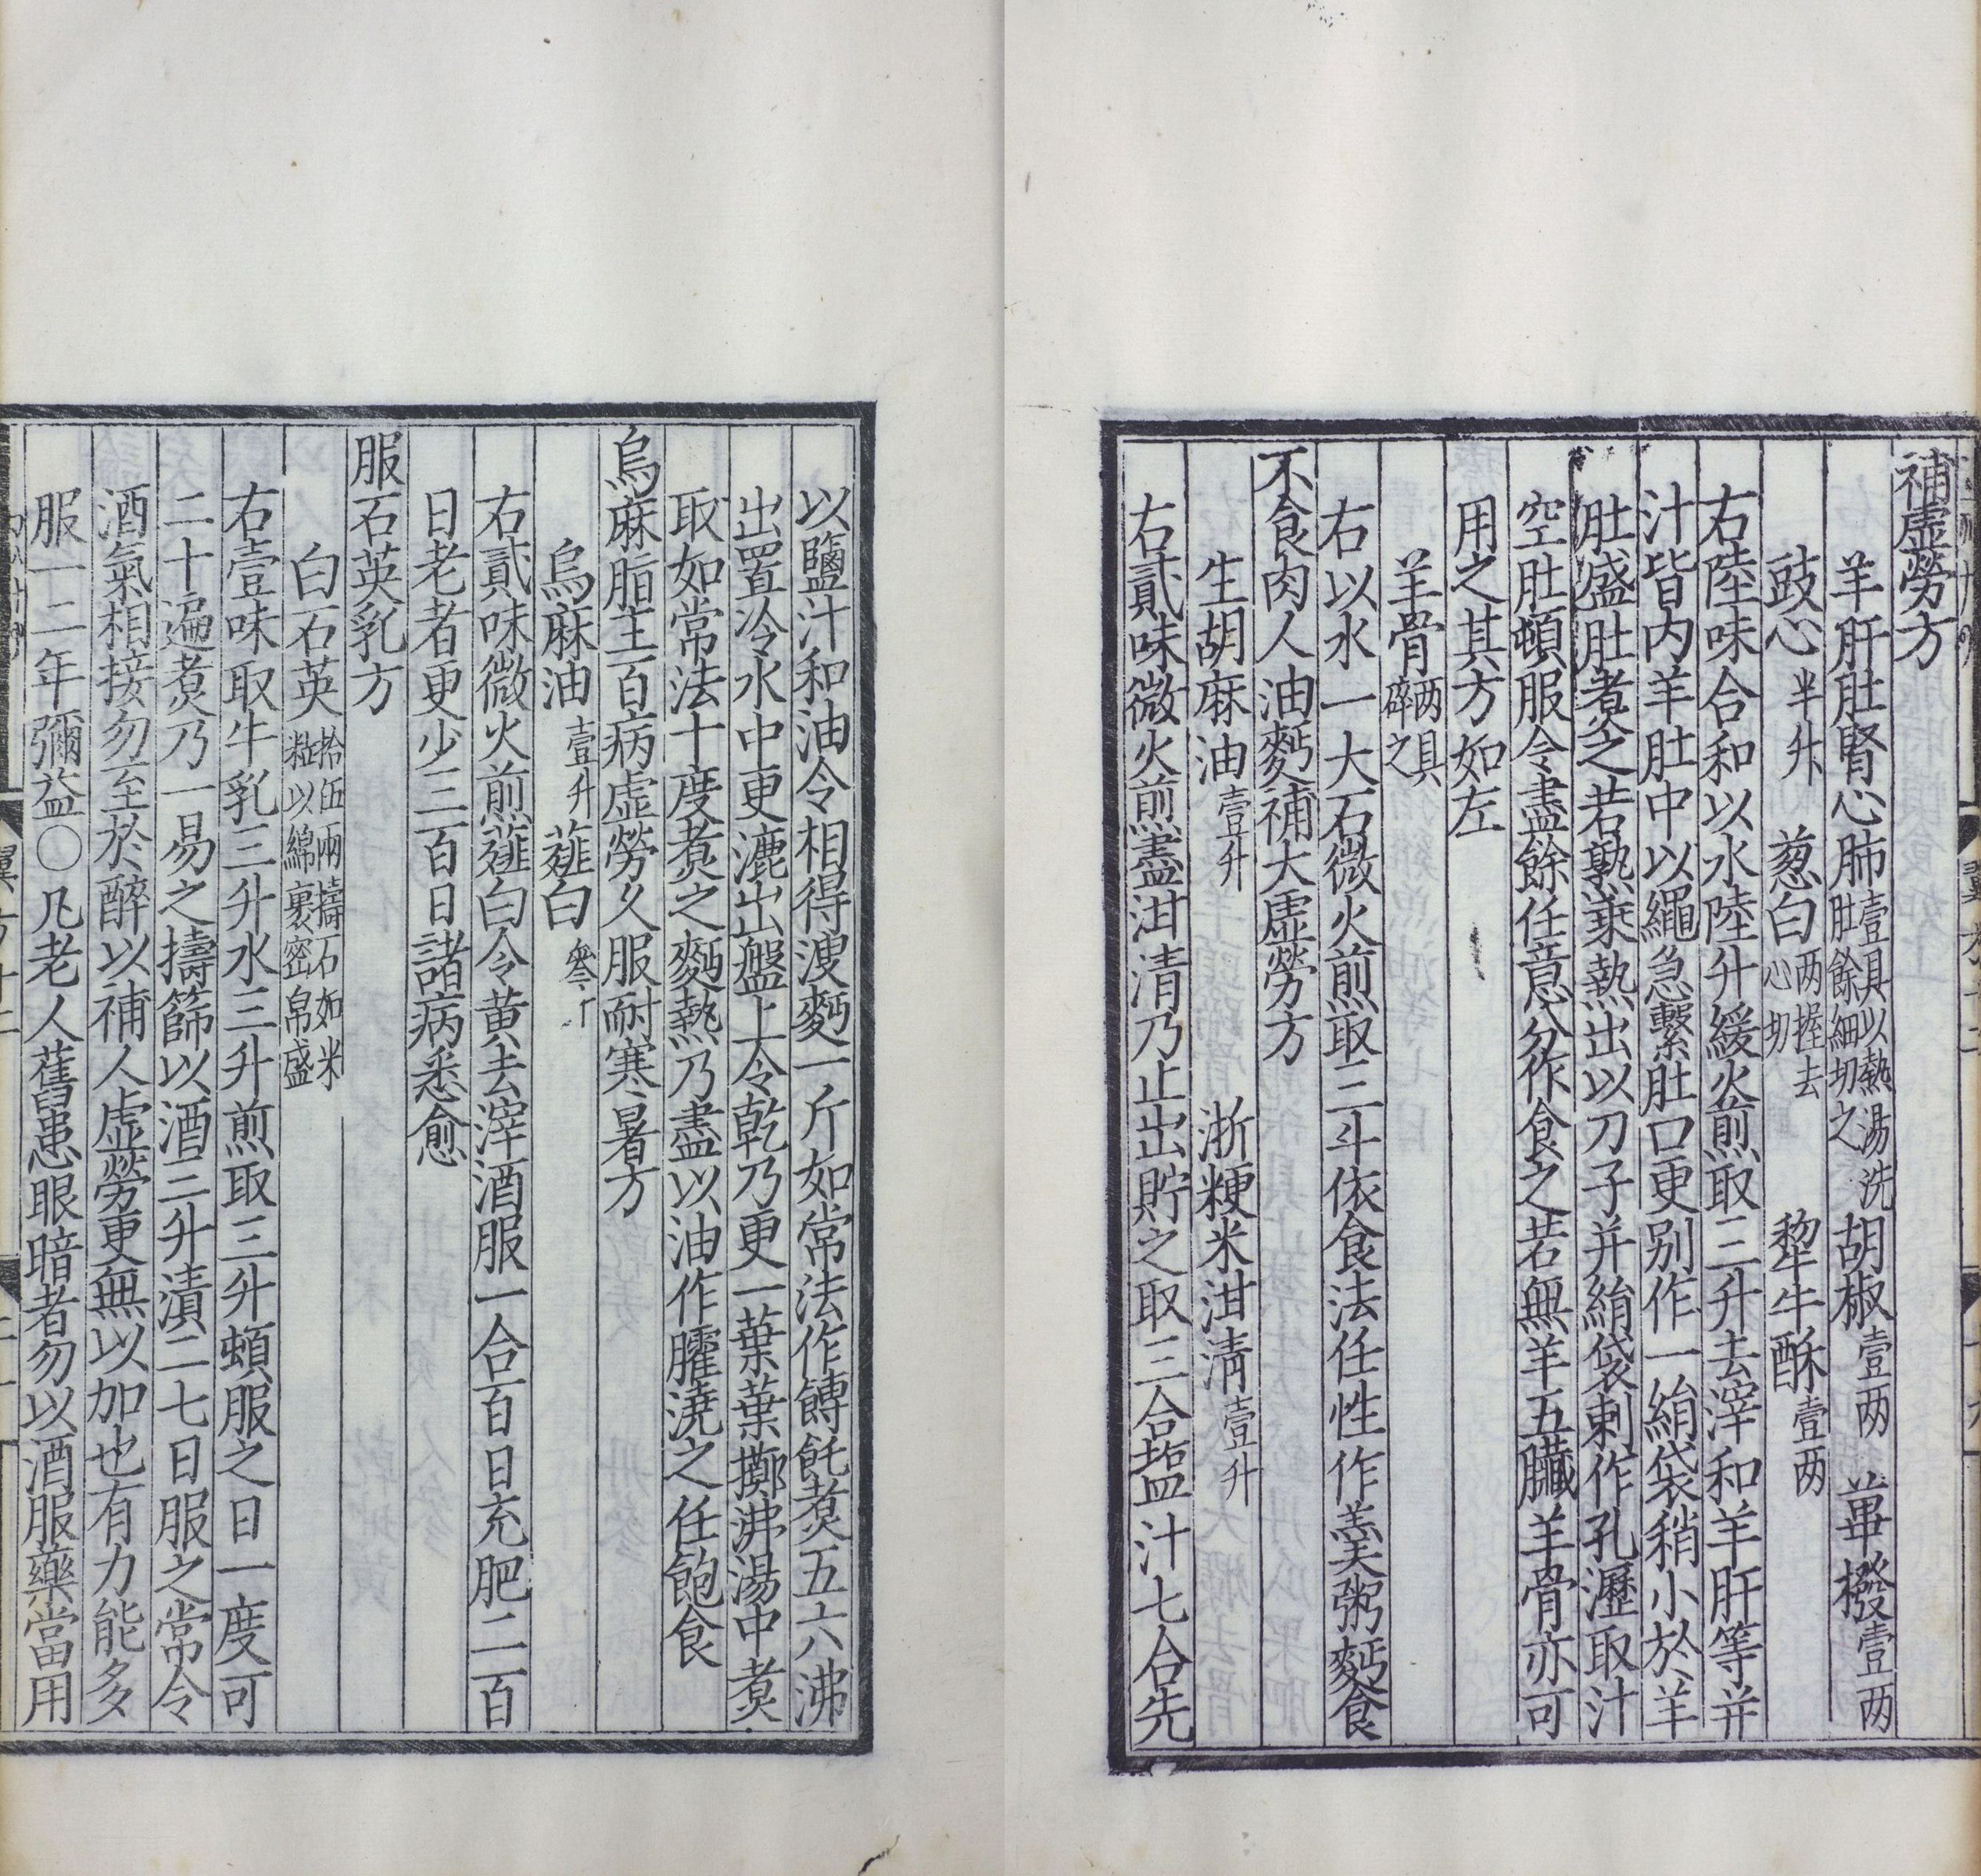 補虛勞方
羊肝肚腎心肺壹具以熱湯洗肚餘細切之胡椒壹两蓽撥壹两
豉心半升葱白两握去心切犂牛酥壹两
右陸味合和以水陸升緩火煎取三升去滓和羊肝等并
汁皆内羊肚中以繩急繫肚口更别作一絹袋稍小於羊
肚盛肚煮之若熟乘熱出以刀子并絹袋刺作孔瀝取汁
空肚頓服令盡餘任意分作食之若無羊五臟羊骨亦可
用之其方如左
羊骨两具碎之
右以水一大石微火煎取三斗依食法任性作羹粥麪食
不食肉人油麪補大虛勞方
生胡麻油壹升浙粳米泔清壹升
右貳味微火煎盡泔清乃止出貯之取三合塩汁七合先
以鹽汁和油令相得溲麪一斤如常法作餺飥煑五六沸
出置冷水中更漉出盤上令乾乃更一葉葉擲沸湯中煑
取如常法十度煑之麪熱乃盡以油作臛澆之任飽食
烏麻脂主百病虛勞久服耐寒暑方
烏麻油壹升薤白叄斤
右貳味微火煎薤白令黄去滓酒服一合百日充肥二百
日老者更少三百日諸病悉愈
服石英乳方
白石英拾伍兩擣石如米粒以綿裹密帛盛
右壹味取牛乳三升水三升煎取三升頓服之日一度可
二十遍煑乃一易之擣篩以酒三升漬二七日服之常令
酒氣相接勿至於醉以補人虛勞更無以加也有力能多
服一二年彌益○凡老人舊患眼暗者勿以酒服藥當用